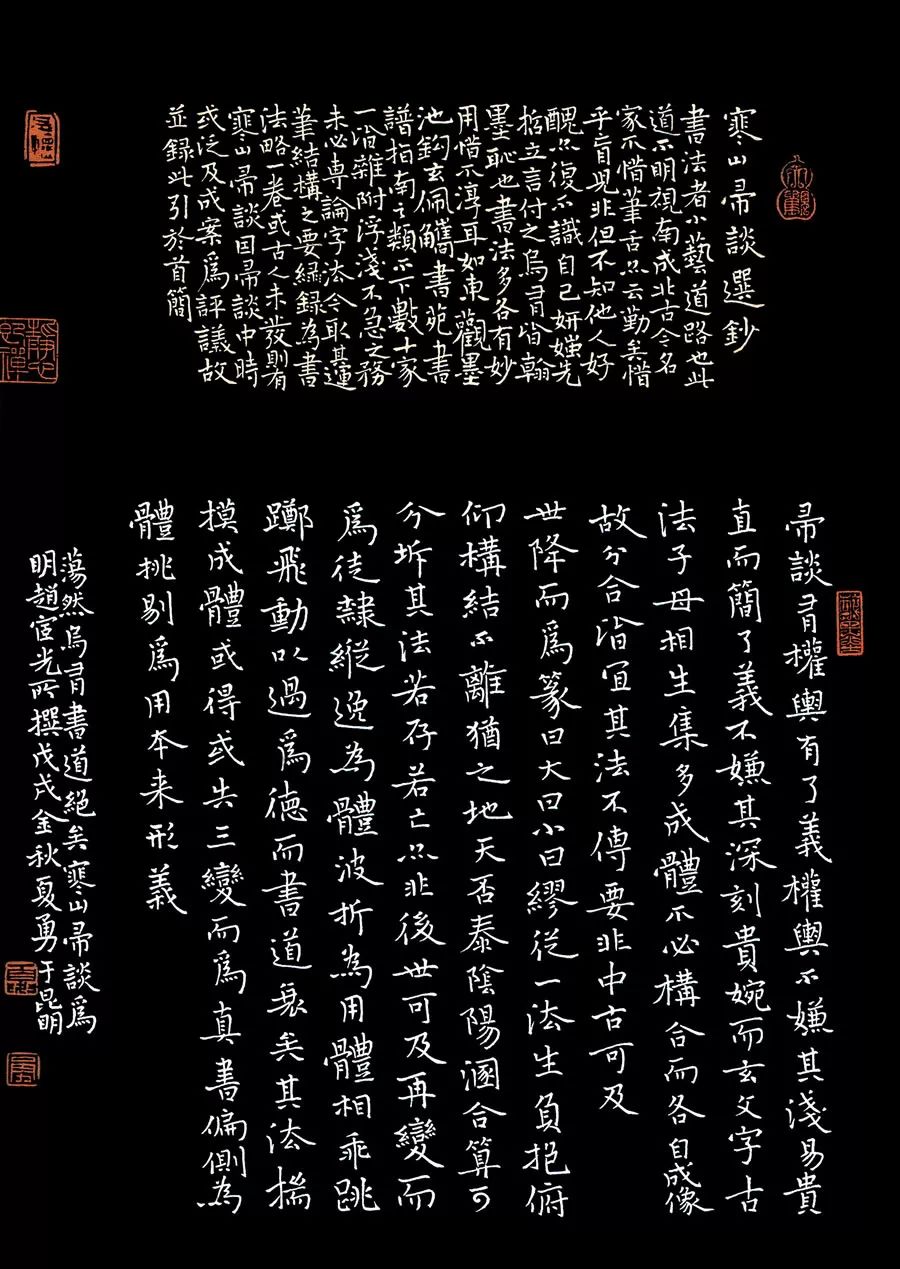 寒山帚談選鈔
書法者小藝道路也此
道不明視南成北古今名
家不惜筆舌然云勤矣惜
乎盲見非但不知他人好
醜然復不識自己妍媸先
哲立言付之烏有皆翰
墨恥也書法多各有妙
用惜不淳耳如東觀墨
池鈎玄佩觿書苑書
譜指南之類不下數十家
一洽雜附浮淺不急之務
未必專論字法今取其運
筆結構之要綠錄為書
法略一卷或古人未發則有
寒山帚談因帚談中時
或泛及成案爲評議故
並録此引於首簡
帚談有權輿有了義權輿不嫌其淺易貴
直而簡了義不嫌其深刻貴婉而玄文字古
法子母相生集多成體不必構合而各自成像
故分合皆宜其法不傳要非中古可及
世降而爲篆曰大曰小曰繆從一法生負抱俯
仰構結不離猶之地天否泰陰陽溷合算可
分坼其法若存若亡然非後世可及再變而
爲徒隸縱逸為體波折為用體相乖跳
躑飛動以過爲德而書道衰矣其法揣
摸成體或得或失三變而爲真書偏側為
體挑剔爲用本来形義
蕩然烏有書道絕矣寒山帚談爲
明趙宧光所撰戊戌金秋夏勇于昆明